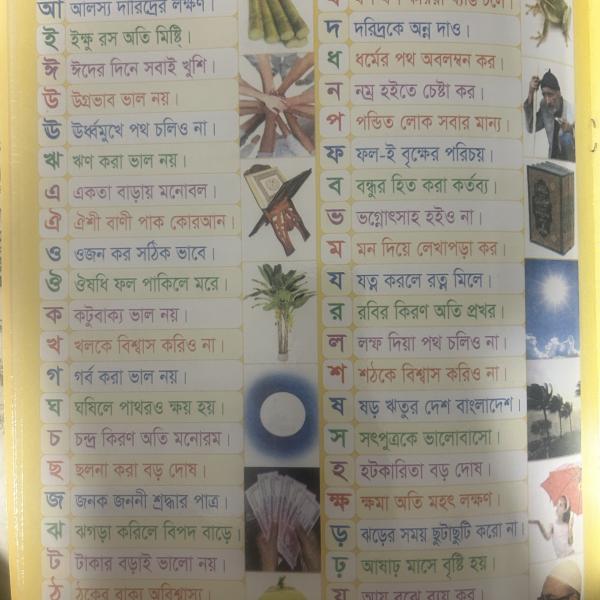 আ আলস্য দারিদ্রের লক্ষণ।
ই ইক্ষু রস অতি মিষ্টি।
ঈ ঈদের দিনে সবাই খুশি।
উ উগ্রভাব ভাল নয়।
ঊ ঊর্ধ্বমুখে পথ চলিও না।
ঋ ঋণ করা ভাল নয়।
এ একতা বাড়ায় মনোবল।
ঐ ঐশী বাণী পাক কোরআন।
ও ওজন কর সঠিক ভাবে।
ঔ ঔষধি ফল পাকিলে মরে।
ক কটুবাক্য ভাল নয়।
খ খলকে বিশ্বাস করিও না।
গ গর্ব করা ভাল নয়।
ঘ ঘষিলে পাথরও ক্ষয় হয়।
চ চন্দ্র কিরণ অতি মনোরম।
ছ ছলনা করা বড় দোষ।
জ জনক জননী শ্রদ্ধার পাত্র।
ঝ ঝগড়া করিলে বিপদ বাড়ে।
ট টাকার বড়াই ভালো নয়।
ঠ ঠকের বাক্য অবিশ্বাস্য।
দ দরিদ্রকে অন্ন দাও।
ধ ধর্মের পথ অবলম্বন কর।
ন নম্র হইতে চেষ্টা কর।
প পন্ডিত লোক সবার মান্য।
ফ ফল-ই বৃক্ষের পরিচয়।
ব বন্ধুর হিত করা কর্তব্য।
ভ ভগ্নোৎসাহ হইও না।
ম মন দিয়ে লেখাপড়া কর।
য যত্ন করলে রত্ন মিলে।
র রবির কিরণ অতি প্রখর।
ল লম্ফ দিয়া পথ চলিও না।
শ শঠকে বিশ্বাস করিও না।
ষ ষড় ঋতুর দেশ বাংলাদেশ।
স সৎপুত্রকে ভালোবাসো।
হ হটকারিতা বড় দোষ।
ক্ষ ক্ষমা অতি মহৎ লক্ষণ।
ড় ঝড়ের সময় ছুটাছুটি করো না।
ঢ় আষাঢ় মাসে বৃষ্টি হয়।
য় আয় বুঝে ব্যয় কর।